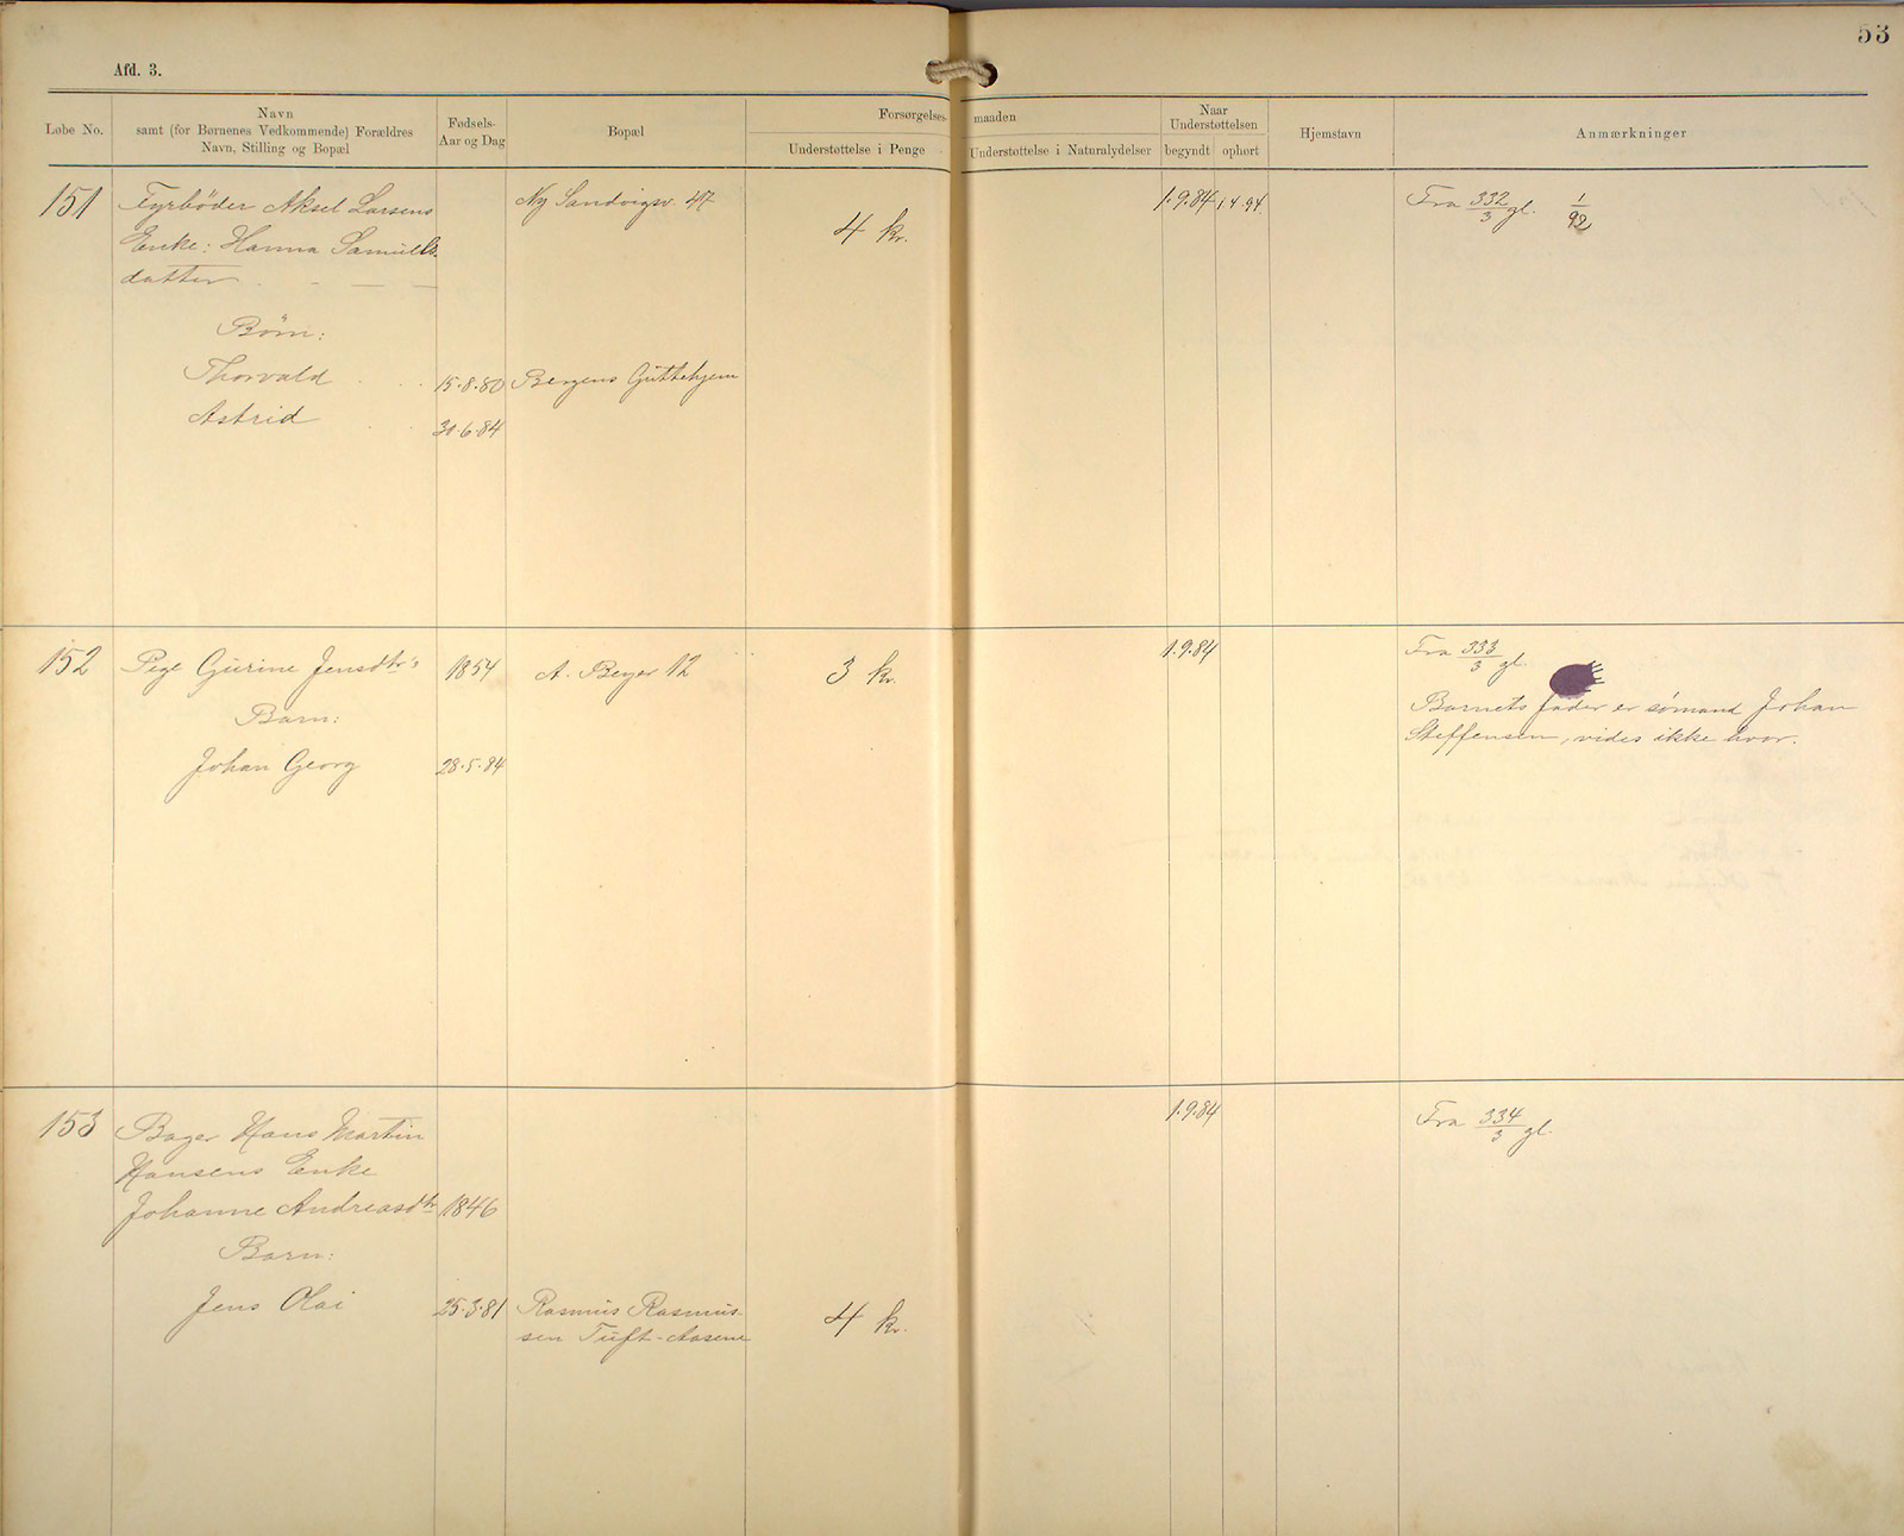 53
Afd. 3.
Løbe No.
Navn
samt (for Børnenes Vedkommende) Forældres
Navn, Stilling og Bopæl
Fødsels-
Aar og Dag
Bopæl
Forsørgelses-
maaden
Understøttelse i Penge
Understøttelse i Naturalydelser
Naar
Understøttelsen
begyndt
ophørt
Hjemstavn
Anmærkninger
151
Fyrbøder Aksel Larsens
Enke: Hanna Samuels-
datter
Ny Sandvigsv. 47
4 kr.
1.9.84
1.4.94.
Fra 332/3 gl. 1/92
Børn:
Thorvald
15.8.80
Bergens Guttehjem
Astrid
30.6.84
152
Pige Gurine Jensdtr's
1854
A. Beyer 12
3 kr.
1.9.84
Fra 333/3 gl.
Barn:
Barnets fader er sømand Johan
Steffensen, vides ikke hvor.
Johan Georg
28.5.84
153
Bager Hans Martin
Hansens Enke
Johanne Andreasdtr
1846
1.9.84
Fra 334/3 gl.
Barn:
Jens Olai
25.3.81
Rasmus Rasmus-
sen Tuft-Aasene
4 kr.